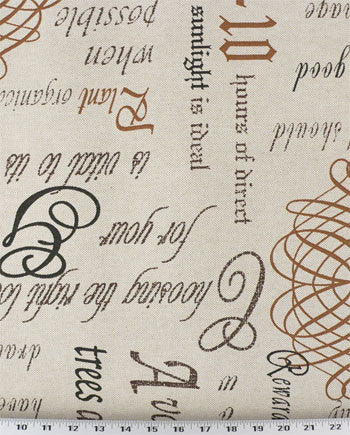 possible
when
Plant organic
is vital to its
for your
Choosing the right lo
-10
hours of direct
sunlight is ideal
nage
good
should
trees a
have
Rewar
10 11 12 13 14 15 16 17 18 19 20 21 22